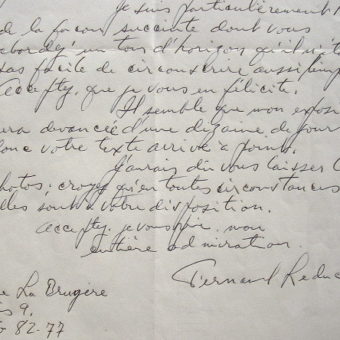 je suis particulièrement
de la façon succinte dont vous
abordez un tour d'horizon qu'il n'ét
pas facile de circonscrire aussi simp
Acceptez, que je vous en félicite.
Il semble que mon expos
sera devancée d'une dizaine de jour
donc votre texte arrive à point.
J'aurais dû vous laisser l
photos; croyez qu'en toutes circonstances
elles sont à votre disposition.
Acceptez, je vous prie, mon
entière admiration.
Fernand Leduc
e La Bruyère
is 9.
82.77